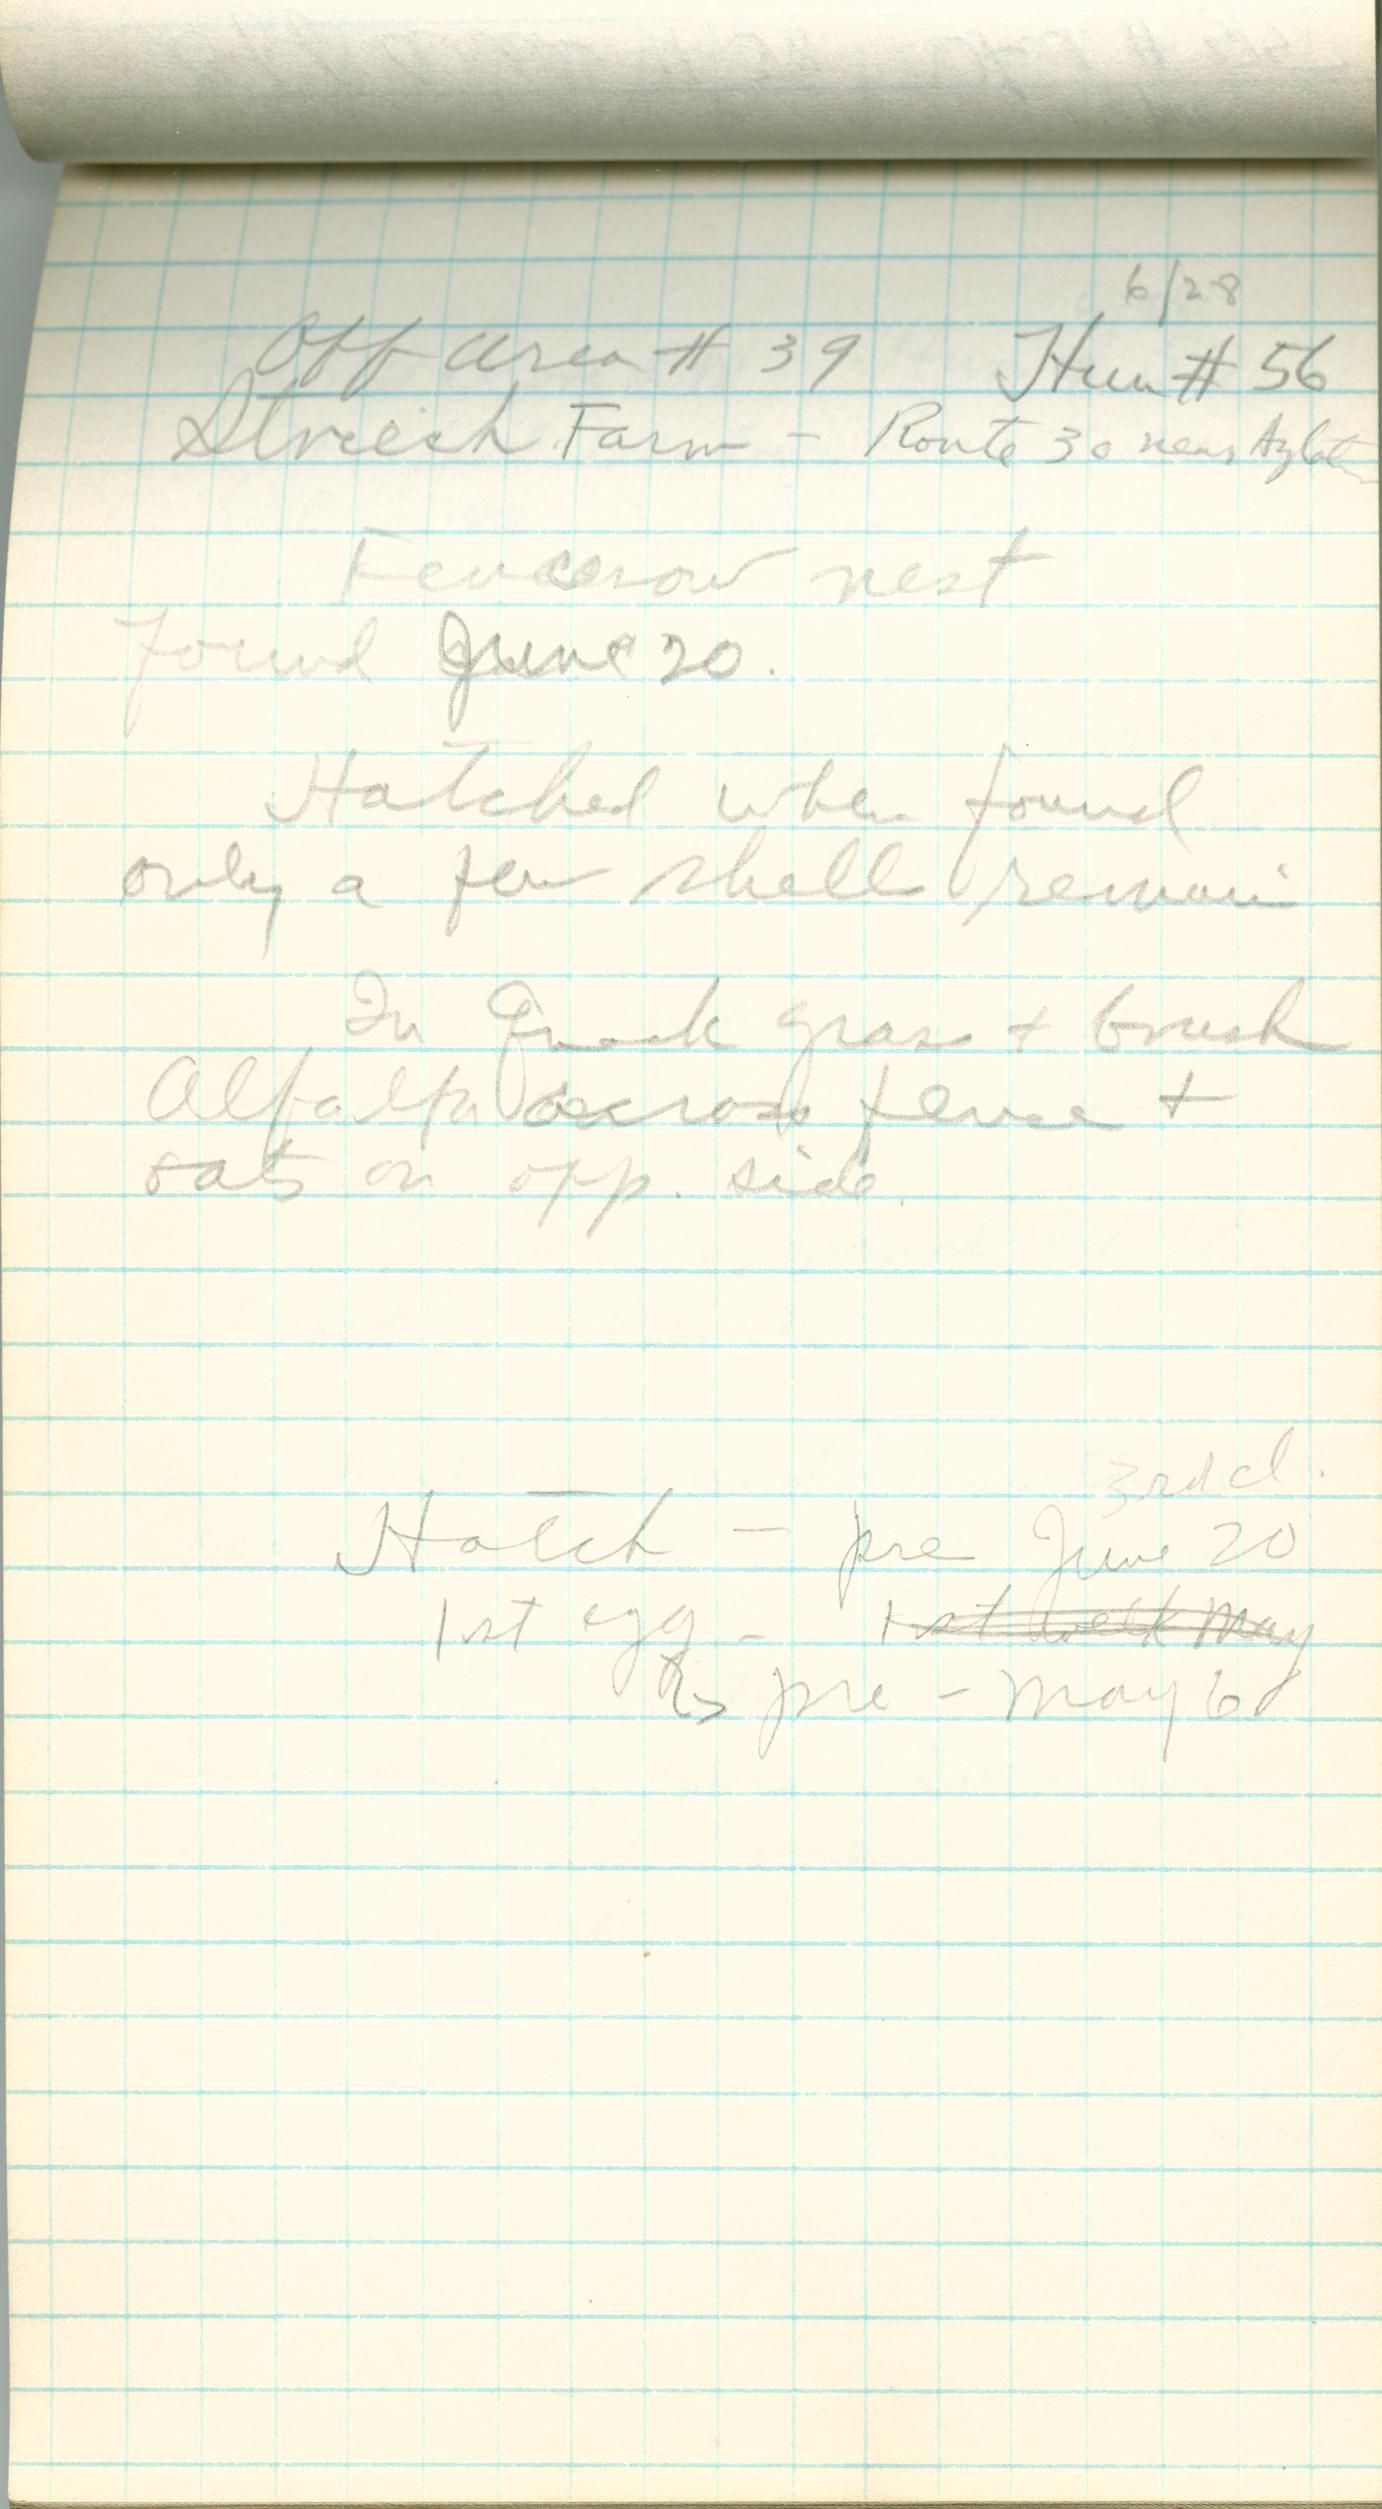 6/28
Off area # 39 Hun # 56
Farm - Route 30 near
Fencerow nest
found June 20.
Hatched when found
only a few shell remain
In Quack grass + brush
Alfalfa across fence +
oats on opp. side.
3rd cl.
Hatch - pre June 20
1st egg - 1st week May
pre - May 6